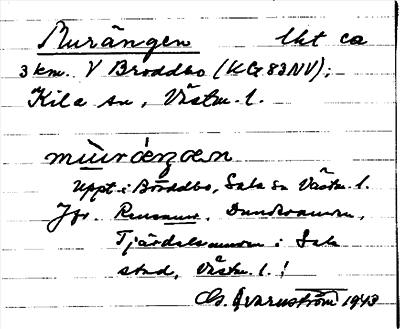 Murängen lht ca
3 km. V Broddbo (KG83NV);
Kila sn, Västm. l.
mu̇̀ráŋgæn
Uppt. i Broddbo, Sala sn Västm. l.
Jfr. Rensmur, Dundermuren,
Tjärdalsmuren i Sala
stad, Västm. l.!
Cs. Qvarnström 1943